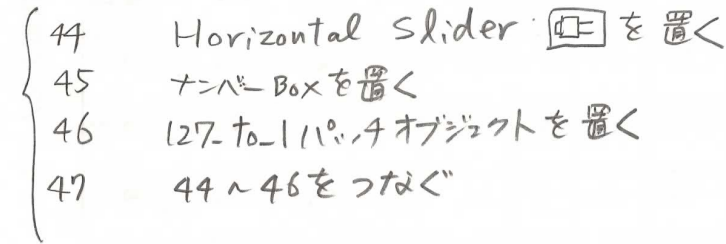 44 Horizontal Slider を置く
45 ナンバーBoxを置く
46 127_to_1 パッチオブジェクトを置く
47 44〜46をつなぐ